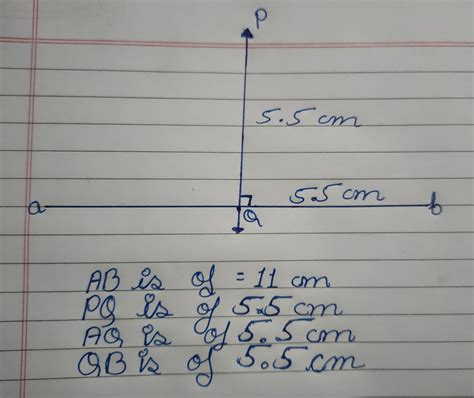 P
5.5 cm
5.5 cm
a
Q
b
AB is of = 11 cm
PQ is of 5.5 cm
AQ is of 5.5 cm
QB is of 5.5 cm